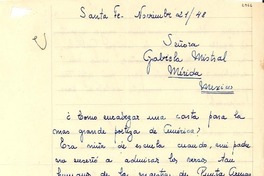 Santa Fe. Noviembre 21/48
Señora
Gabriela Mistral
Mérida
Mexico
¿Como encabezar una carta para la
mas grande poetiza de América?
Era niña de escuela cuando, mi padre
me enseñó a admirar los versos tan
humanos de la maestra de Punta Arenas